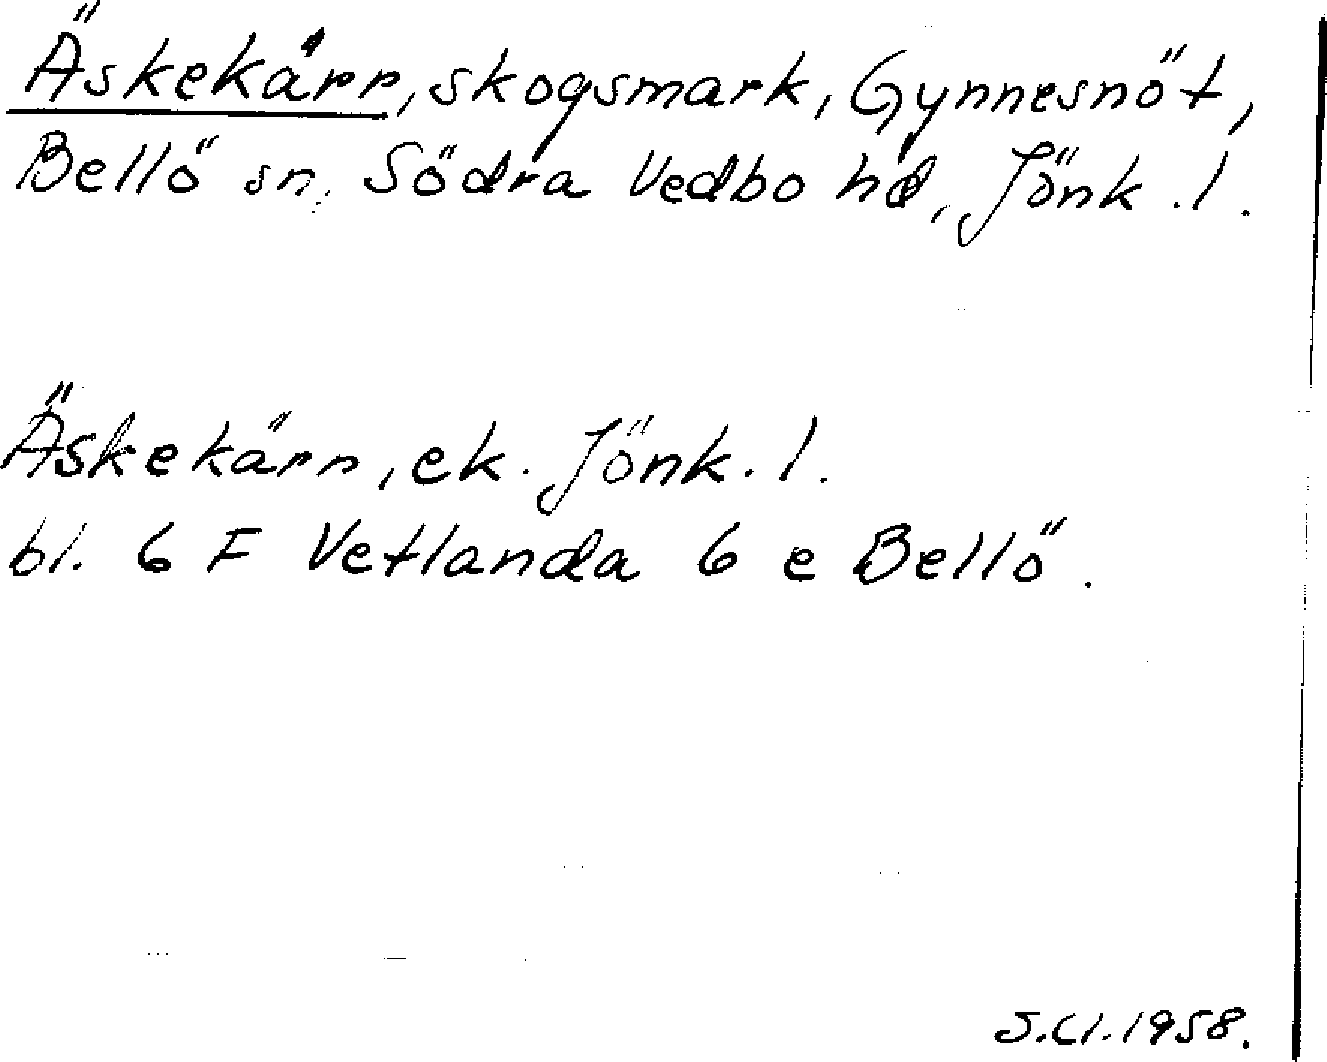 Äskekärr, skogsmark, Gynnesnöt,
Bellö sn, Södra Vedbo hd, Jönk. l.
Äskekärr, ek. Jönk. l.
bl. 6 F Vetlanda 6 e Bellö.
1958.